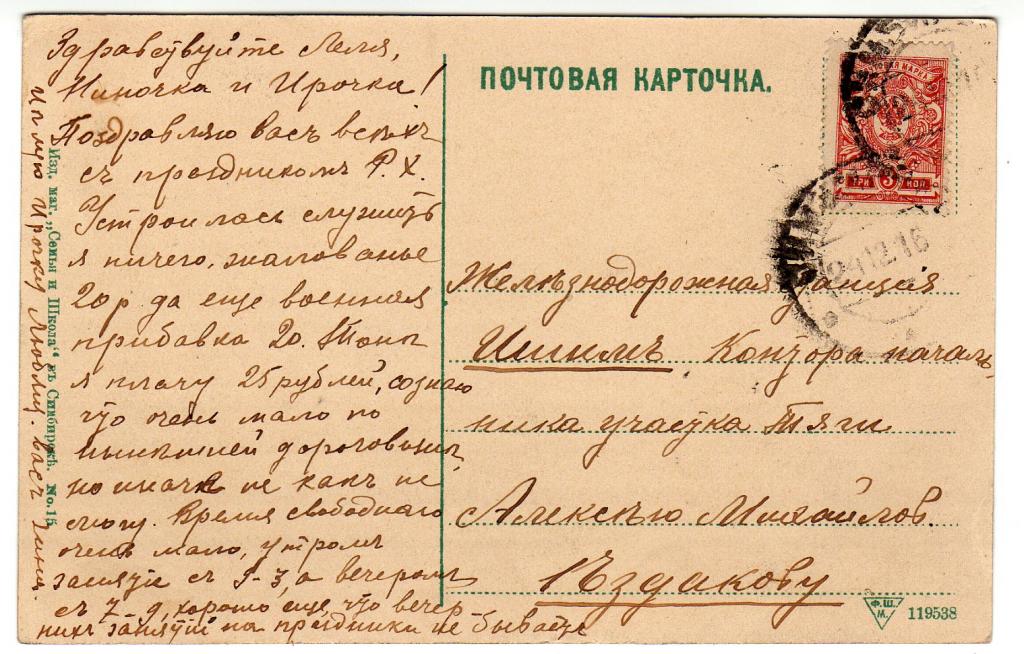 Здравствуйте Леля,
Ниночка и Ирочка!
Поздравляю васъ всѣхъ
съ праздникомъ Р. Х.
Устроилась служить
я ничего, жалованье
20 р да еще военная
прибавка 20. Тони
я плачу 25 рублей, сознаю
что очень мало по
нынѣшней дороговизнѣ,
но иначе не какъ не
могу. Время свободнаго
очень мало, утромъ
занятіе съ 9-3, а вечеромъ
съ 7-9, хорошо еще, что вечер-
нихъ занятій на праздники не бываетъ
Цѣлую Ирочку Люблящ. васъ
Изд. маг. „Семья и Школа“ въ Симбирскѣ. No. 15
ПОЧТОВАЯ КАРТОЧКА.
ПОЧТОВАЯ МАРКА
ТРИ 3 КОП
12.16
Желѣзнодорожная станція
Ишимъ Контора началь-
ника участка Тяги
Алексѣю Михайлов.
Ѣздакову
Ф. Ш.
М.
119538